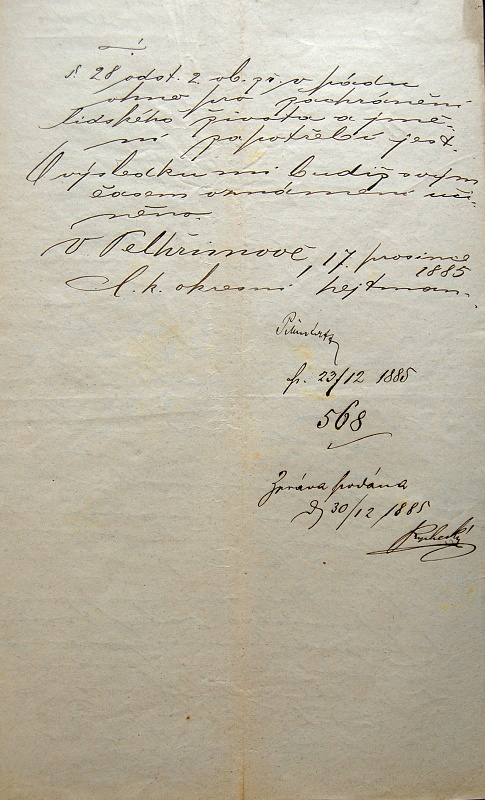 § 28 odst. 2. ob. zř. v pádu
ohně pro zachránění
lidského života a jmě-
ní zapotřebí jest.
O výsledku mi budiž svým
časem oznámení uči-
něno.
V Pelhřimově, 17. prosince
1885
C. k. okresní hejtman.
pr. 23/12 1885
568
Zpráva podána
d 30/12 1885